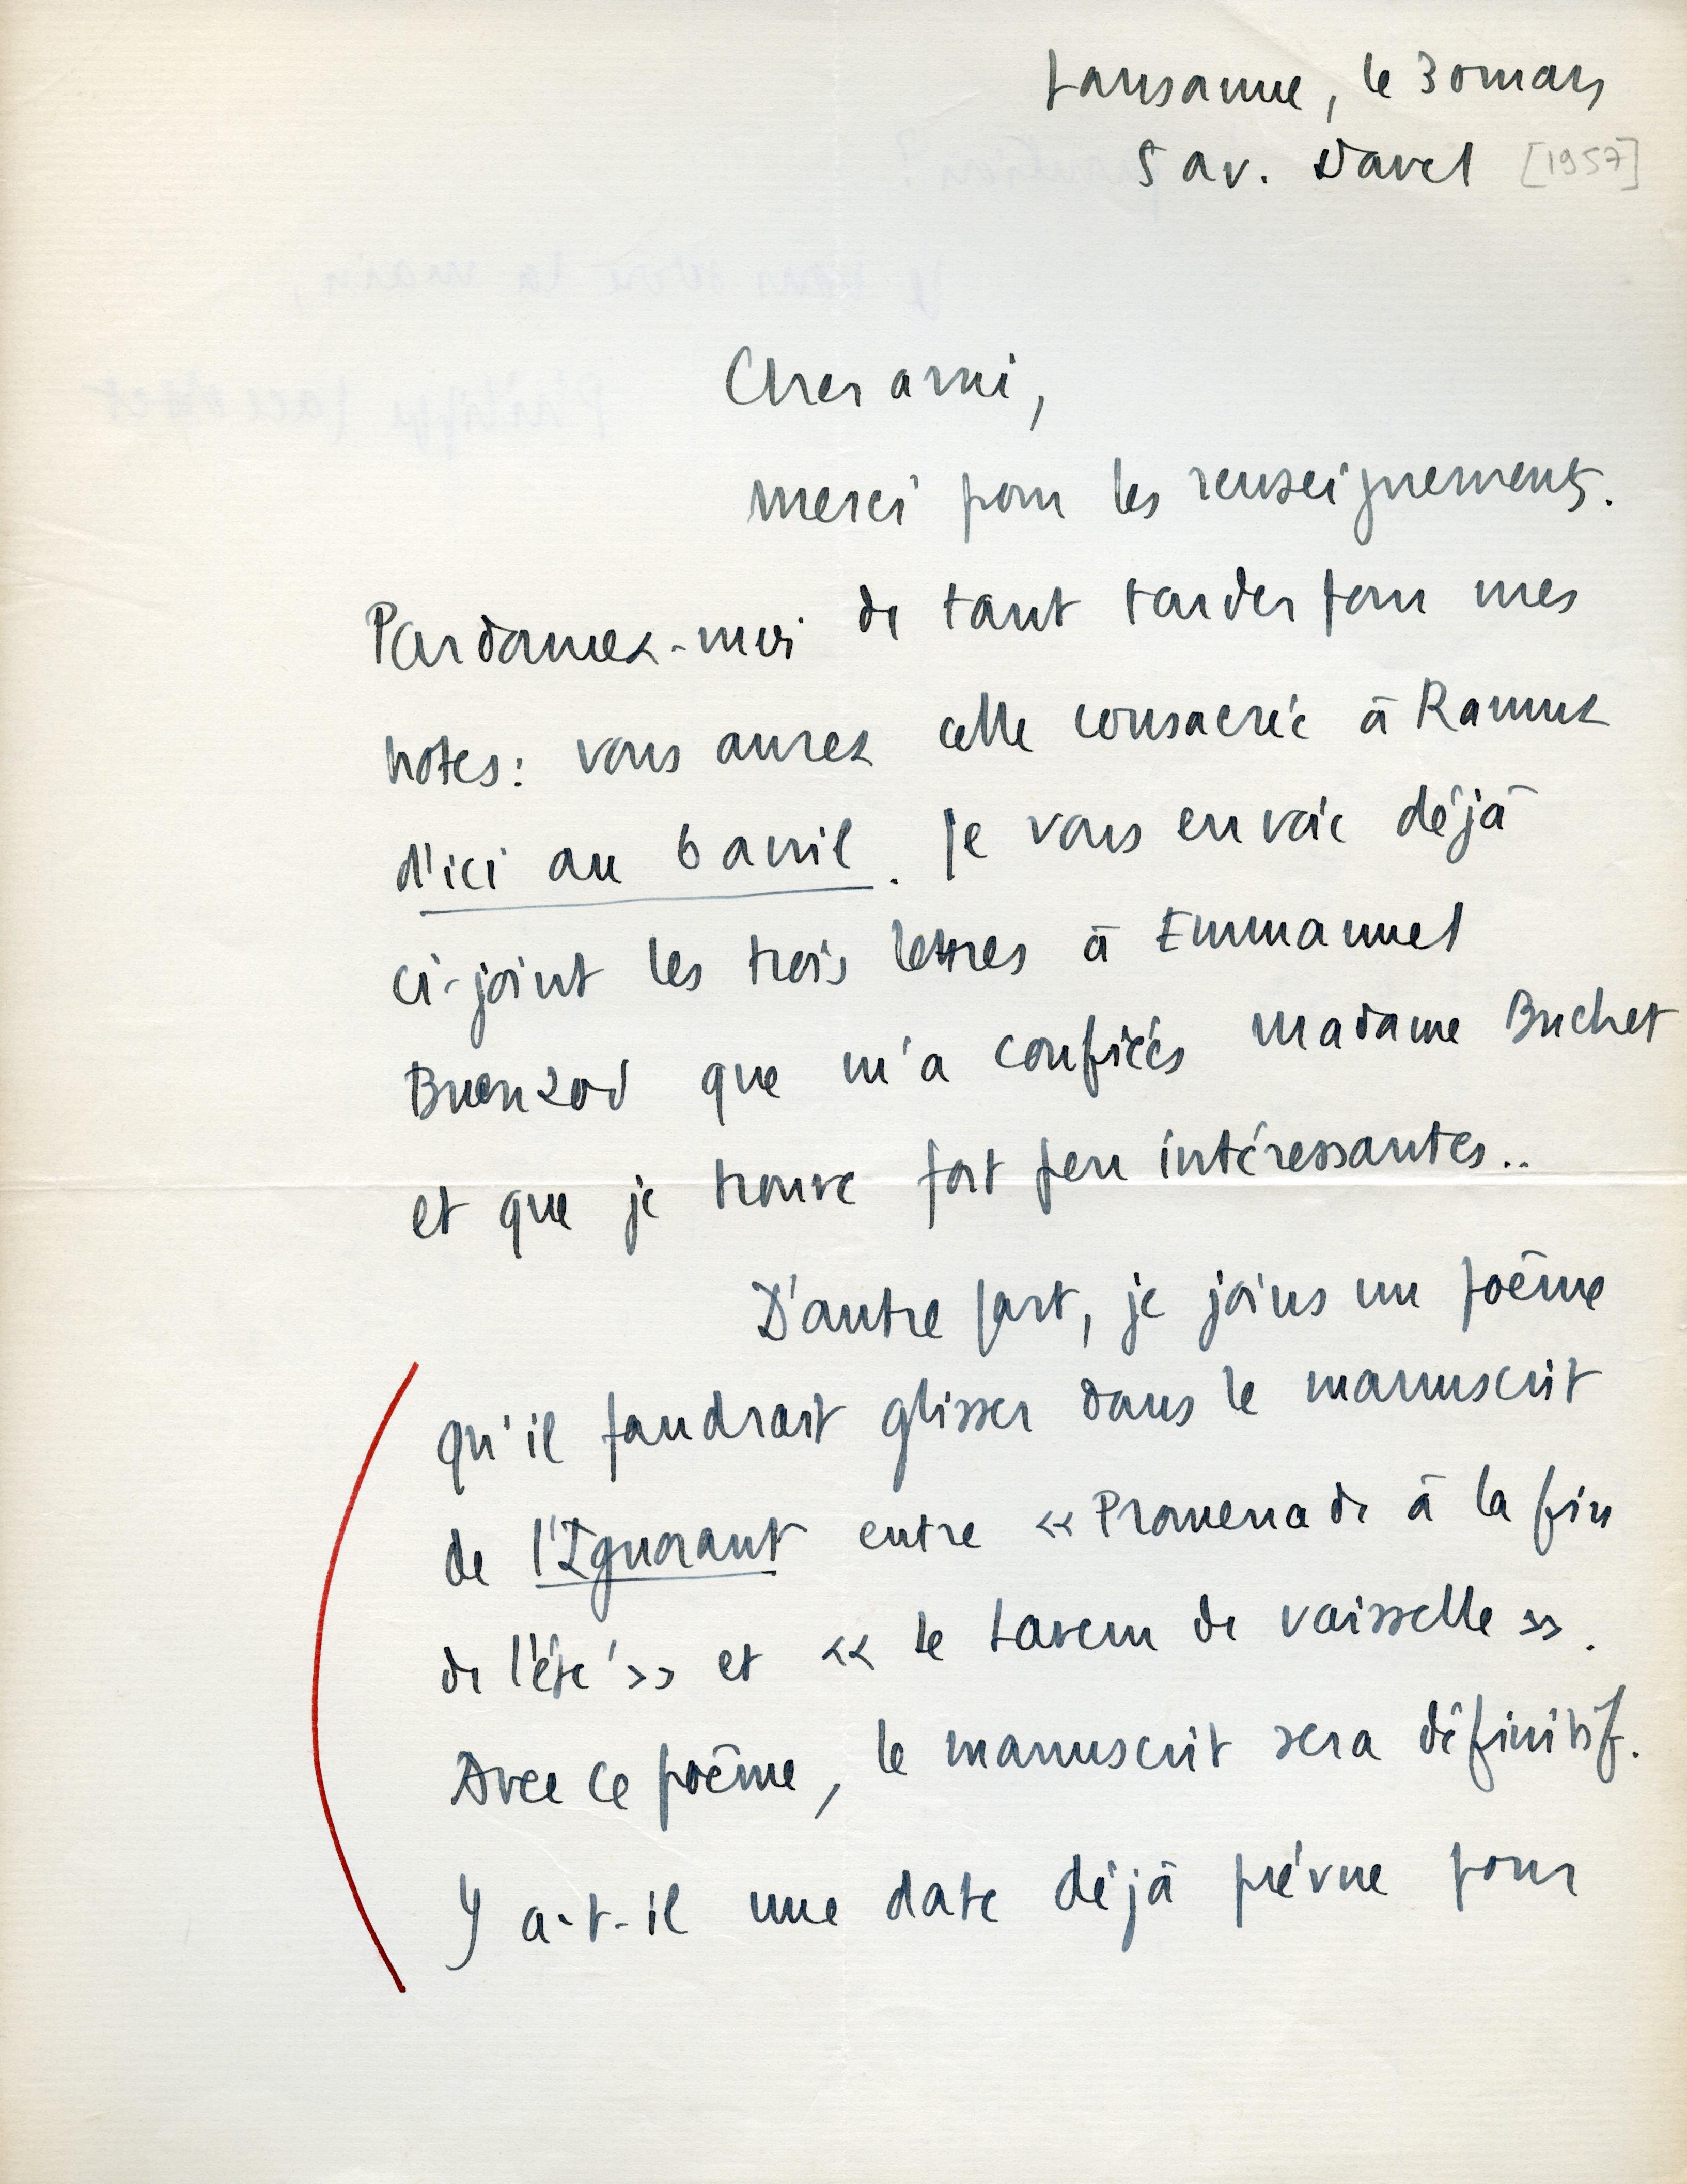 Lausanne, le 30 mars
5 av. Davel [1957]
Cher ami,
merci pour les renseignements.
Pardonnez-moi de tant tarder pour mes
notes: vous aurez celle consacrée à Ramuz
d'ici au 6 avril. Je vous envoie déjà
ci-joint les trois lettres à Emmanuel
Buenzod que m'a confiées Madame Buchet
et que je trouve fort peu intéressantes..
D'autre part, je joins un poème
qu'il faudrait glisser dans le manuscrit
de l'Ignorant entre « Promenade à la fin
de l'été » et « le laveur de vaisselle ».
Avec ce poème, le manuscrit sera définitif.
Y a-t-il une date déjà prévue pour
parution?
Je vous serre la main,
Philippe Jaccottet